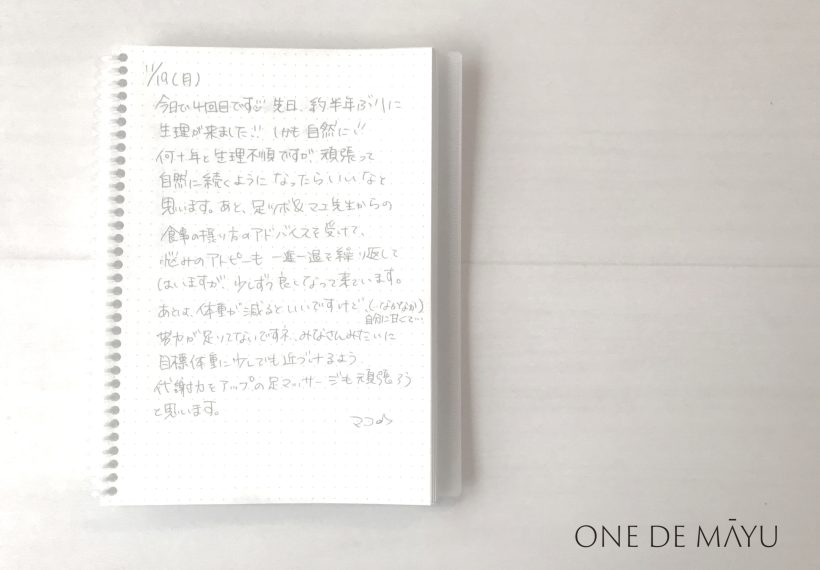 11/19(月)
今日で4回目です!! 先日、約半年ぶりに
生理が来ました!! しかも自然に!!
何十年と生理不順ですが 頑張って
自然に続くようになったらいいなと
思います。あと、足ツボ&マユ先生からの
食事の摂り方のアドバイスを受けて、
悩みのアトピーも 一進一退で繰り返して
はいますが、少しずつ良くなって来ています。
あとは、体重が減るといいですけど、(なかなか)
自分に甘くて…
努力が足りてないですネ。みなさんみたいに
目標体重に少しでも近づけるよう
代謝力をアップの足マッサージも頑張ろう
と思います。
マコ
ONE DE MĀYU